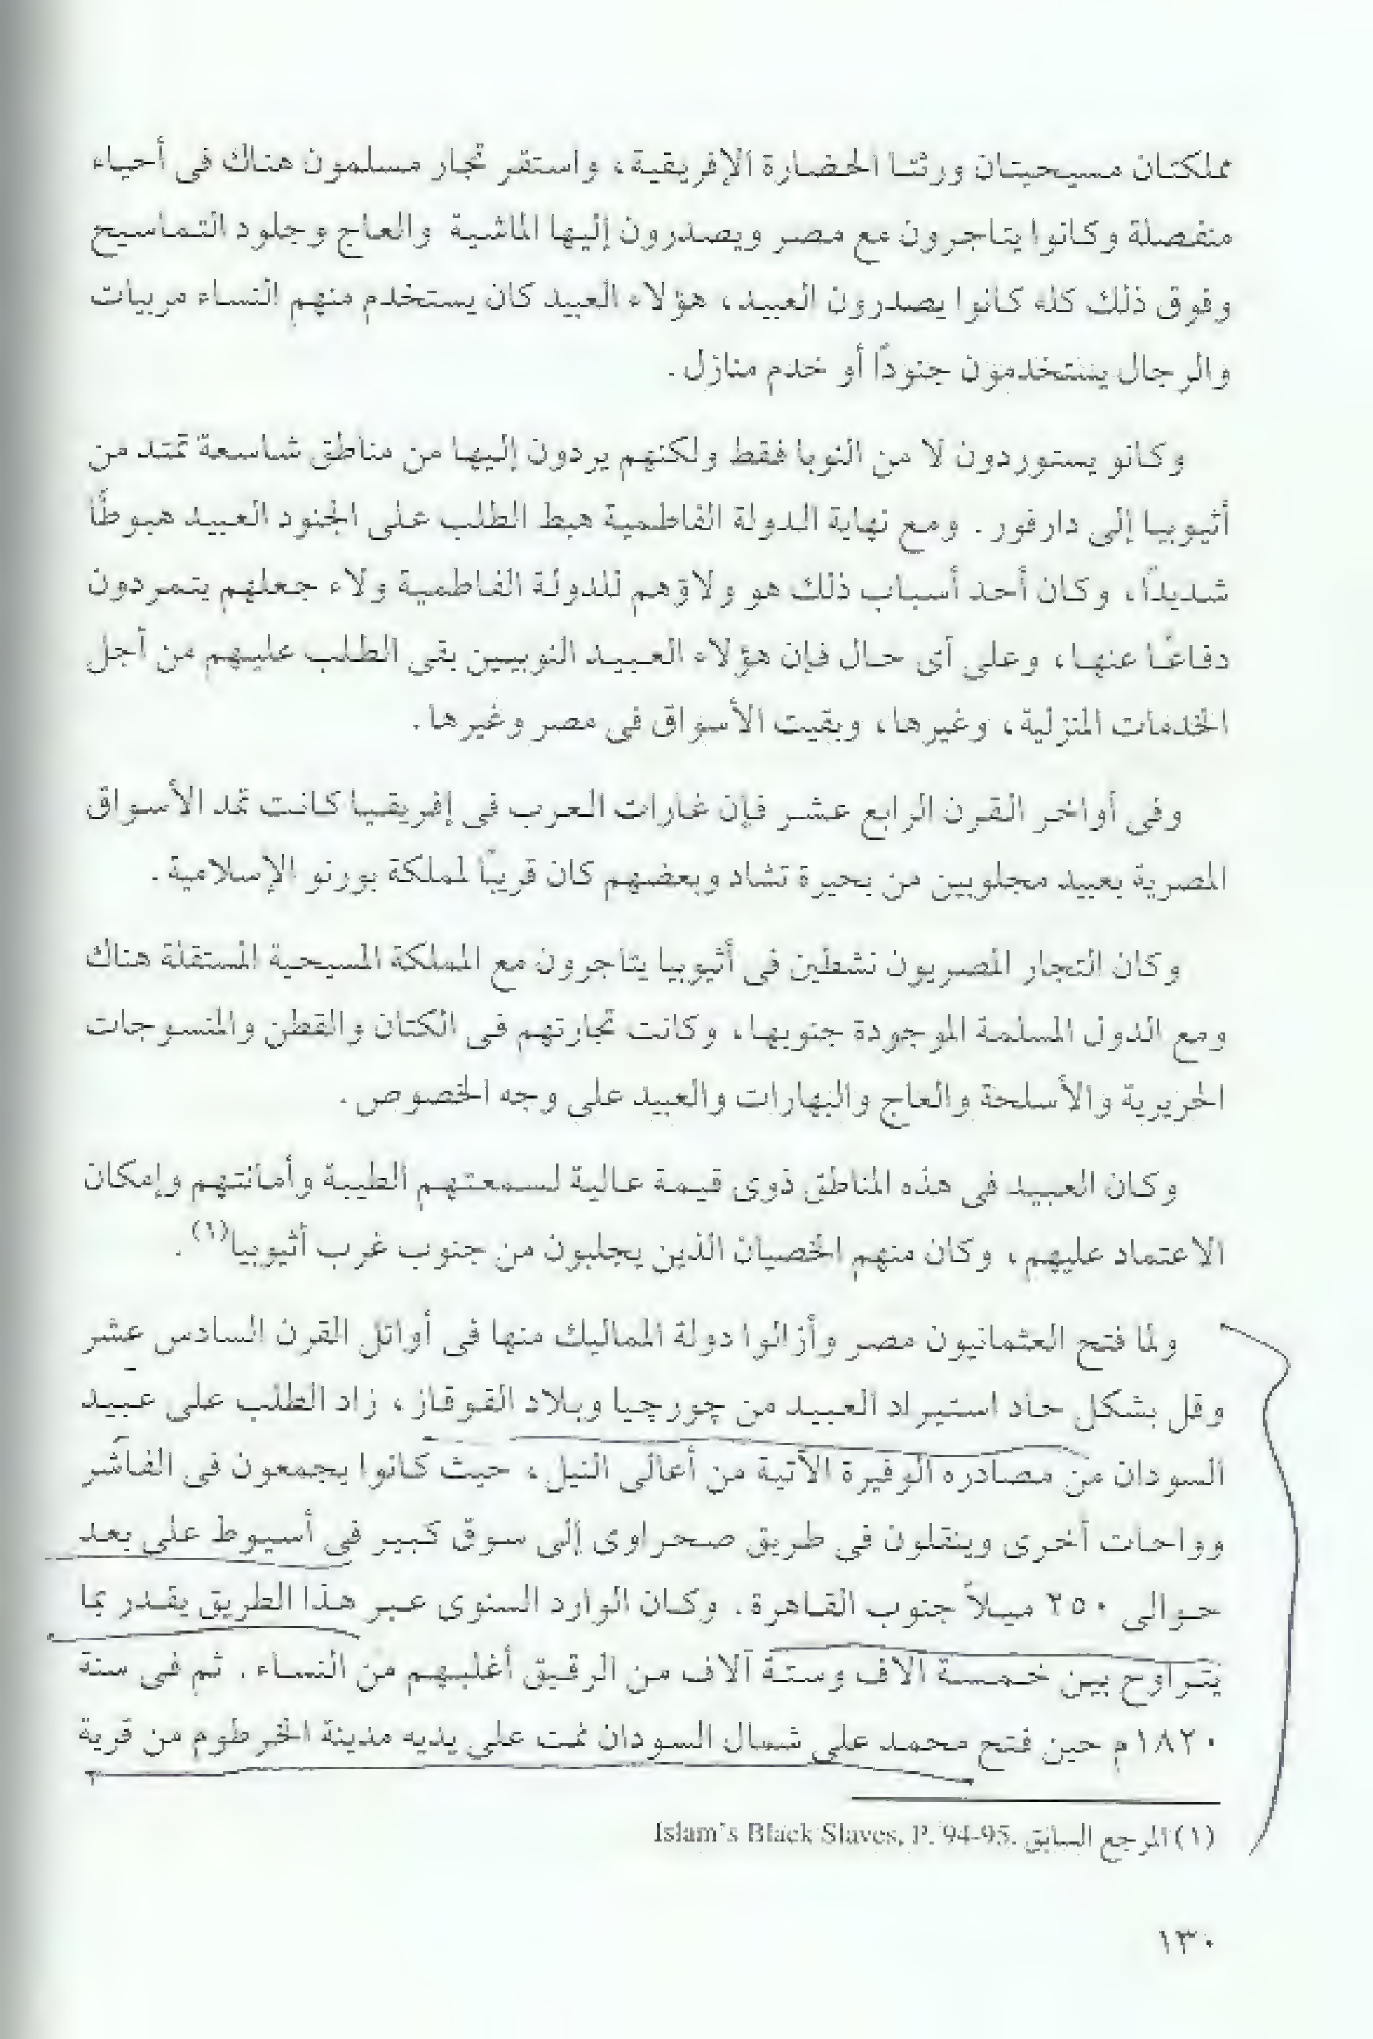 مملكتان مسيحيتان ورثتا الحضارة الإفريقية، واستقر تجار مسلمون هناك فى أحياء
منفصلة وكانوا يتاجرون مع مصر ويصدرون إليها الماشية والعاج وجلود التماسيح
وفوق ذلك كله كانوا يصدرون العبيد، هؤلاء العبيد كان يستخدم منهم النساء مربيات
والرجال يستخدمون جنودًا أو خدم منازل.
وكانو يستوردون لا من النوبا فقط ولكنهم يردون إليها من مناطق شاسعة تمتد من
أثيوبيا إلى دارفور. ومع نهاية الدولة الفاطمية هبط الطلب على الجنود العبيد هبوطًا
شديدًا، وكان أحد أسباب ذلك هو ولاؤهم للدولة الفاطمية ولاء جعلهم يتمردون
دفاعًا عنها، وعلى أى حال فإن هؤلاء العبيد النوبيين بقى الطلب عليهم من أجل
الخدمات المنزلية، وغيرها، وبقيت الأسواق فى مصر وغيرها.
وفى أواخر القرن الرابع عشر فإن غارات العرب فى إفريقيا كانت تمد الأسواق
المصرية بعبيد مجلوبين من بحيرة تشاد وبعضهم كان قريبًا لمملكة بورنو الإسلامية.
وكان التجار المصريون نشطين فى أثيوبيا يتاجرون مع المملكة المسيحية المستقلة هناك
ومع الدول المسلمة الموجودة جنوبها، وكانت تجارتهم فى الكتان والقطن والمنسوجات
الحريرية والأسلحة والعاج والبهارات والعبيد على وجه الخصوص.
وكان العبيد فى هذه المناطق ذوى قيمة عالية لسمعتهم الطيبة وأمانتهم وإمكان
الاعتماد عليهم، وكان منهم الخصيان الذين يجلبون من جنوب غرب أثيوبيا(١).
ولما فتح العثمانيون مصر وأزالوا دولة المماليك منها فى أوائل القرن السادس عشر
وقل بشكل حاد استيراد العبيد من چورچيا وبلاد القوقاز، زاد الطلب على عبيد
السودان من مصادره الوفيرة الآتية من أعالى النيل، حيث كانوا يجمعون فى الفاشر
وواحات أخرى وينقلون فى طريق صحراوى إلى سوق كبير فى أسيوط على بعد
حوالى ٢٥٠ ميلاً جنوب القاهرة. وكان الوارد السنوى عبر هذا الطريق يقدر بما
يتراوح بين خمسة آلاف وستة آلاف من الرقيق أغلبهم من النساء. ثم فى سنة
١٨٢٠م حين فتح محمد على شمال السودان نمت على يديه مدينة الخرطوم من قرية
(١) المرجع السابق .Islam's Black Slaves, P. 94-95
١٣٠